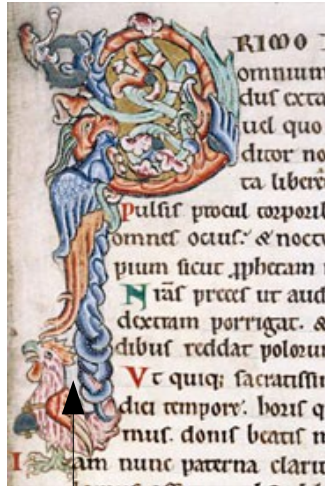 PRIMO
omnium
duſ exta
uel quo
ditor no
ta liberet
Pulſiſ procul torporib
omneſ ociuſ. & nocte
pium ſicut ꝓphetam
Nrāſ preceſ ut aud
dextram porrigat. &
dibus reddat polorum
Vt quiq; ſacratiſſi
diei tempore. horiſ q
mus. doniſ beatiſ
Iam nunc paterna clari